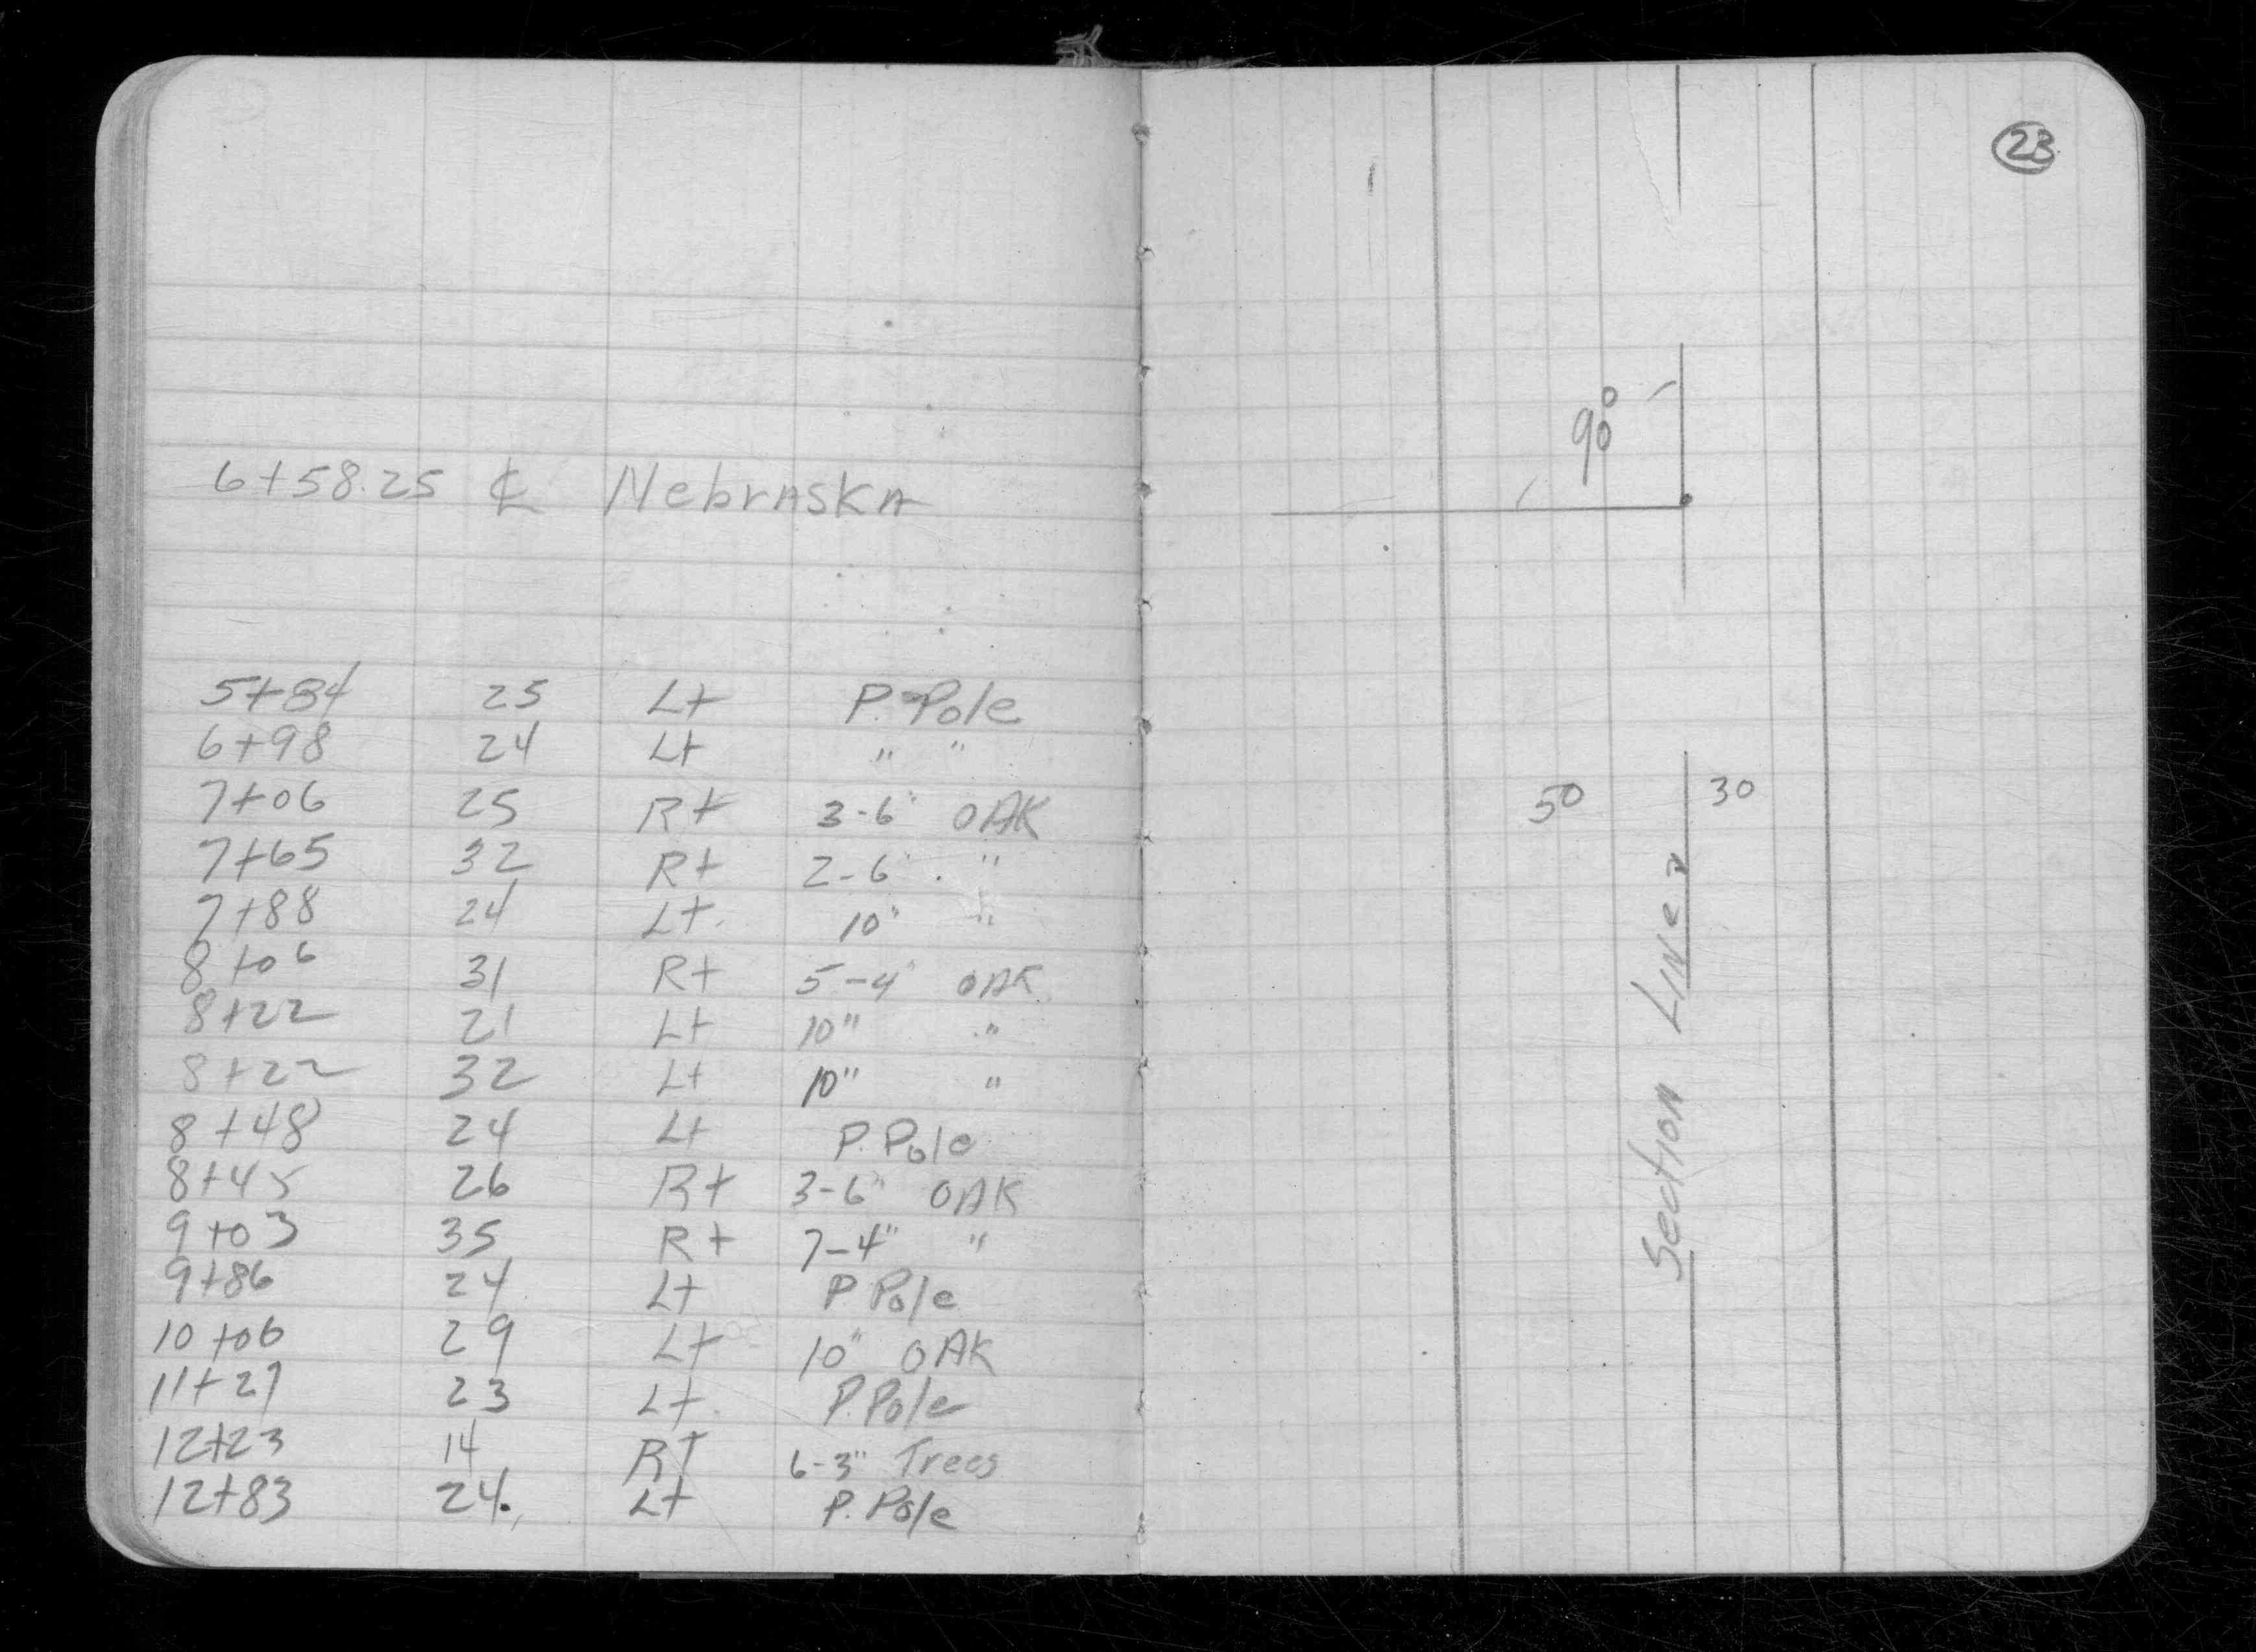 6+58.25 ℄ Nebraska
5+84 25 Lt P. Pole
6+98 24 Lt " "
7+06 25 Rt 3-6" OAK
7+65 32 Rt 2-6" "
7+88 24 Lt. 10" "
8+06 31 Rt 5-4" OAK
8+22 21 Lt 10" "
8+22 32 Lt 10" "
8+48 24 Lt P. Pole
8+45 26 Rt 3-6" OAK
9+03 35 Rt 7-4" "
9+86 24 Lt P Pole
10+06 29 Lt 10" OAK
11+27 23 Lt. P. Pole
12+23 14 Rt 6-3" Trees
12+83 24. Lt P. Pole
23
90°
50 30
Section Line